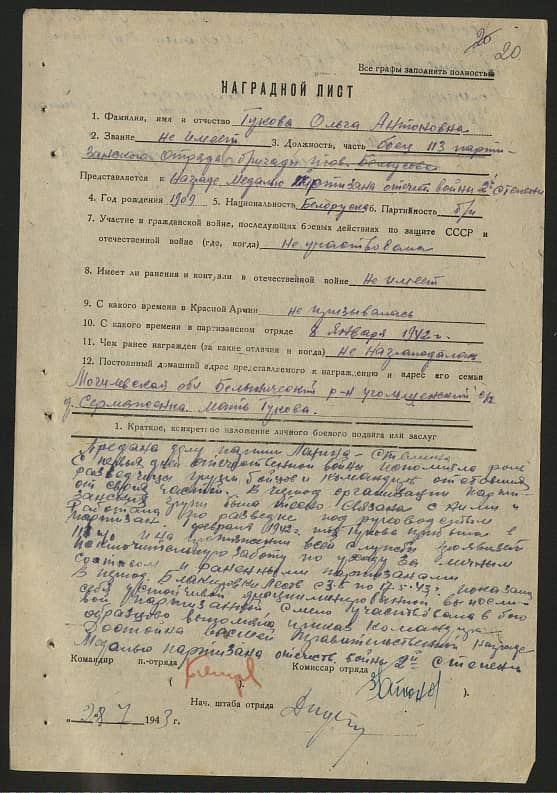 20
20
Все графы заполнять полностью
НАГРАДНОЙ ЛИСТ
1. Фамилия, имя и отчество Гукова Ольга Антоновна
2. Звание не имеет 3. Должность, часть боец 113 парти-
занского отряда бригады
Представляется к награде Медалью Партизана отечест войны 2й степени
4. Год рождения 1909 5. Национальность Белоруска 6. Партийность б/п
7. Участие в гражданской войне, последующих боевых действиях по защите СССР и
отечественной войне (где, когда) не участвовала
8. Имеет ли ранения и контузии в отечественной войне не имеет
9. С какого времени в Красной Армии не призывалась
10. С какого времени в партизанском отряде 8 января 1942 г.
11. Чем ранее награжден (за какие отличия и когда) не награждалась
12. Постоянный домашний адрес представляемого к награждению и адрес его семьи
Могилевская обл Белыничский р-н с/с
д. мать Гукова.
1. Краткое, конкретное изложение личного боевого подвига или заслуг
Предана делу партии Ленина-Сталина
С первых дней отечественной войны
разведчицы группы бойцов и командиров отставших
от своих частей. В период организации парти-
занских групп была тесно связана с ними и
работала по разведке под руководством
партизан. февраля 1942 г. тов Гукова прибыла в
113 п/о и на протяжении всей службы проявляет
исключительную заботу по уходу за личным
составом и ранеными партизанами
В период Блокировки лесов с 3.6 по 17.5.43 г. показала
себя устойчивой дисциплинированной выносли-
вой партизанкой смело участвовала в бою
образцово выполняла приказ командира
Достойна высшей Правительственной награде
Медалью партизана отечеств. войны 2й степени
Командир п.-отряда Комиссар отряда
( ). ( ).
Нач. штаба отряда
" 28 " 1943 г.